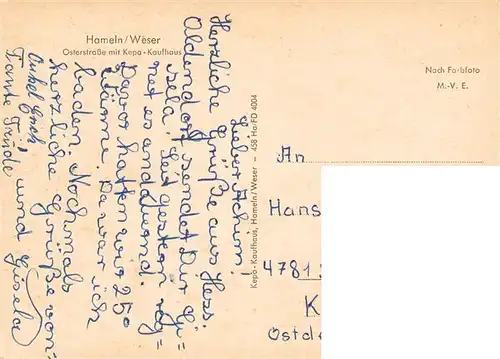 Hameln/Weser
Osterstraße mit Kepa-Kaufhaus
Nach Farbfoto
M.-V. E.
Kepa-Kaufhaus, Hameln/Weser — 458 Ha/FD 4004
Lieber Achim!
Herzliche Grüße aus Hess.
Oldendorf sendet Dir Gi=
sela. Seit gestern reg=
net es andauernd.
Davor hatten wir 25°
Wärme. Da war ich
baden. Nochmals
herzliche Grüße von:
Onkel Erich
Tante Friede und Gisela
An
Hans
4781
K
Ostd